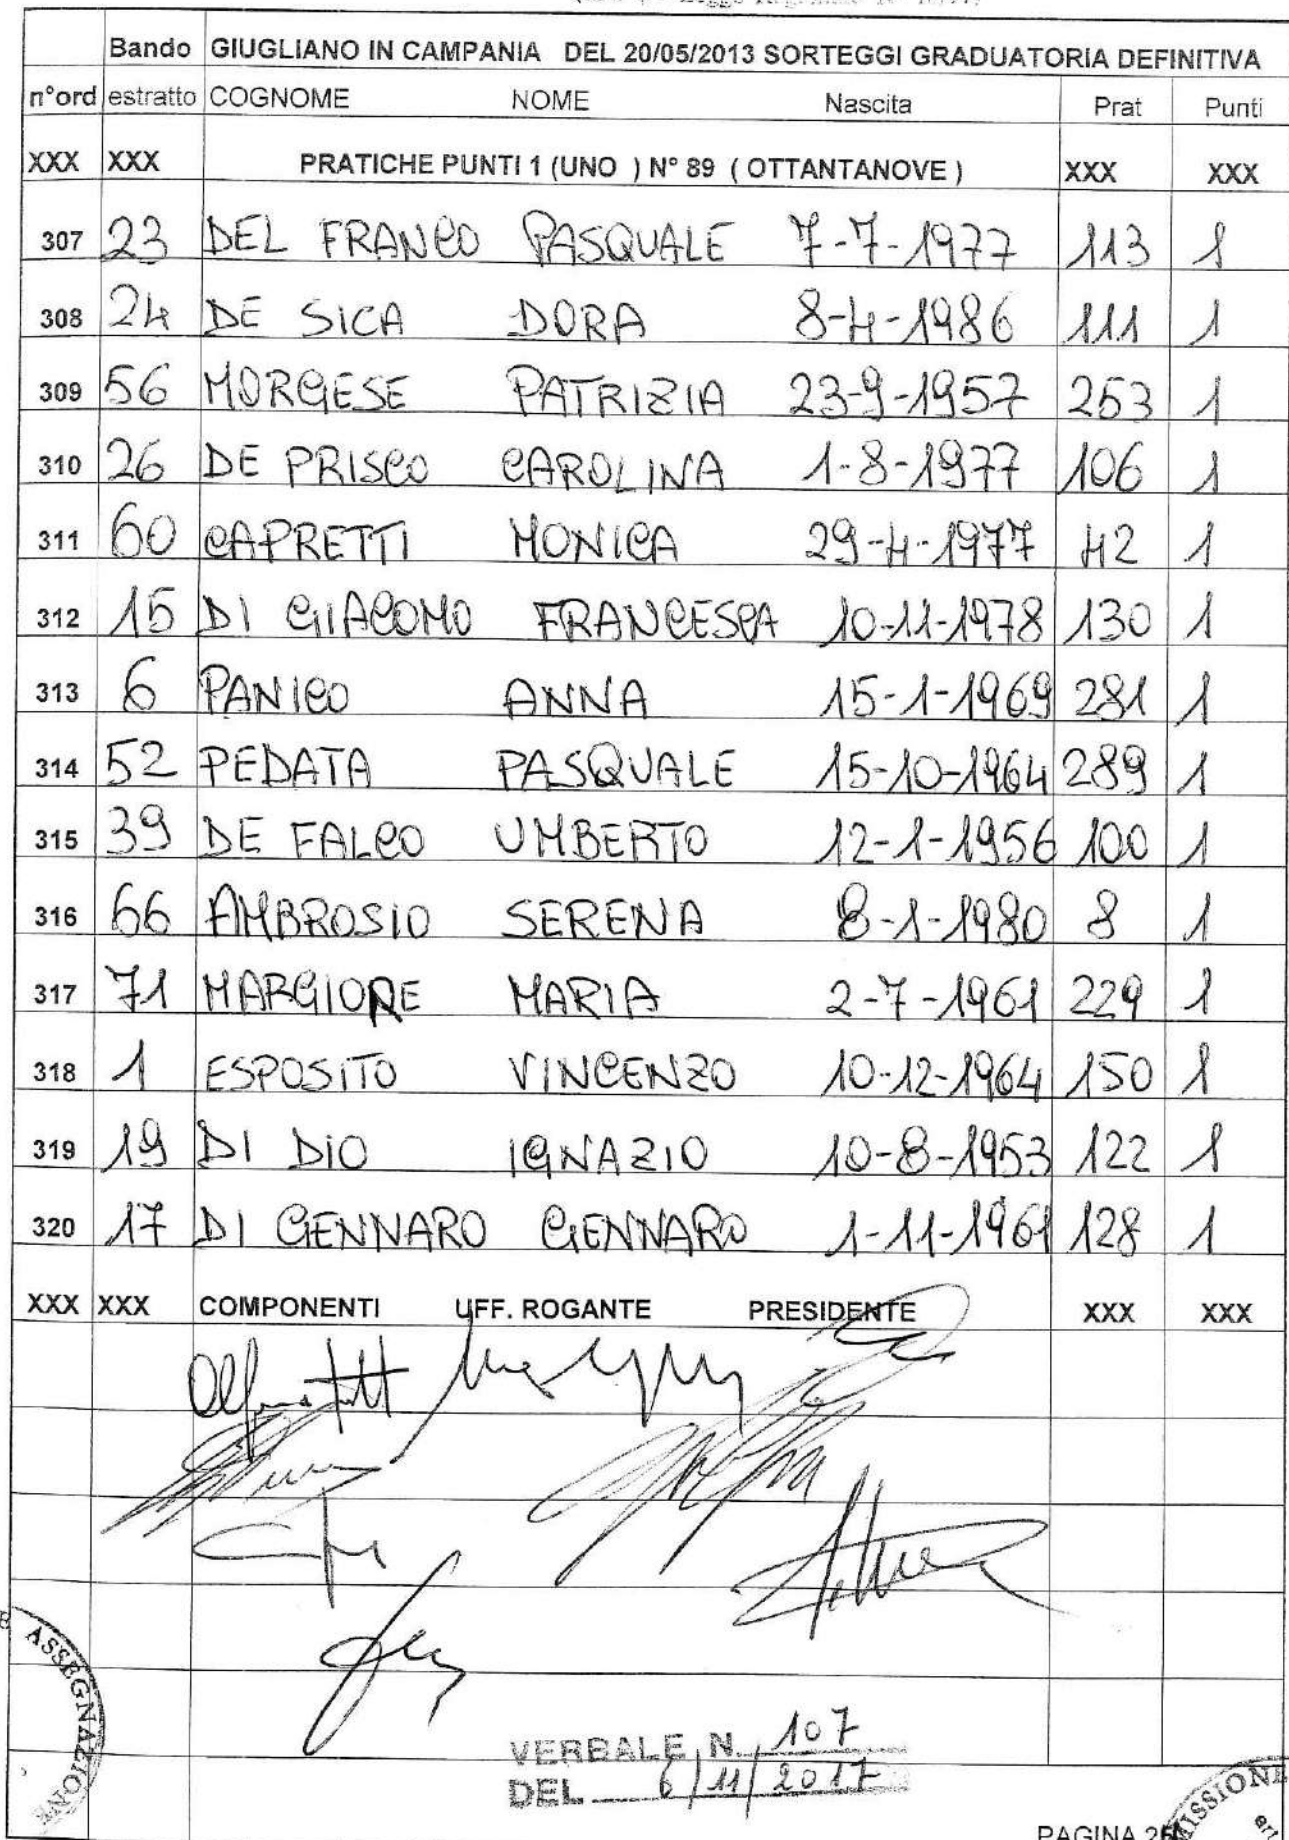 Bando GIUGLIANO IN CAMPANIA DEL 20/05/2013 SORTEGGI GRADUATORIA DEFINITIVA
n°ord estratto COGNOME NOME Nascita Prat Punti
XXX XXX PRATICHE PUNTI 1 (UNO ) N° 89 ( OTTANTANOVE ) XXX XXX
307 23 DEL FRANCO PASQUALE 7-7-1977 113 1
308 24 DE SICA DORA 8-4-1986 111 1
309 56 MORGESE PATRIZIA 23-9-1957 253 1
310 26 DE PRISCO CAROLINA 1-8-1977 106 1
311 60 CAPRETTI MONICA 29-4-1977 42 1
312 15 DI GIACOMO FRANCESCA 10-11-1978 130 1
313 6 PANICO ANNA 15-1-1969 281 1
314 52 PEDATA PASQUALE 15-10-1964 289 1
315 39 DE FALCO UMBERTO 12-1-1956 100 1
316 66 AMBROSIO SERENA 8-1-1980 8 1
317 71 MARGIORE MARIA 2-7-1961 229 1
318 1 ESPOSITO VINCENZO 10-12-1964 150 1
319 19 DI DIO IGNAZIO 10-8-1953 122 1
320 17 DI GENNARO GENNARO 1-11-1961 128 1
XXX XXX COMPONENTI UFF. ROGANTE PRESIDENTE XXX XXX
ASSEGNAZIONE
VERBALE N. 107
DEL 6/11/2017
MISSIONE
PAGINA